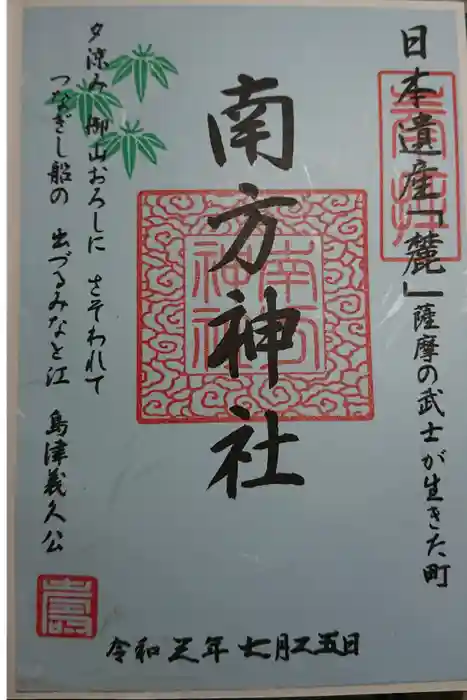 日本遺産「麓」薩摩の武士が生きた町
南方神社
南方神社
夕涼み 御山おろしに さそわれて
つなぎし船の 出づるみなと江 島津義久公
令和三年七月二五日